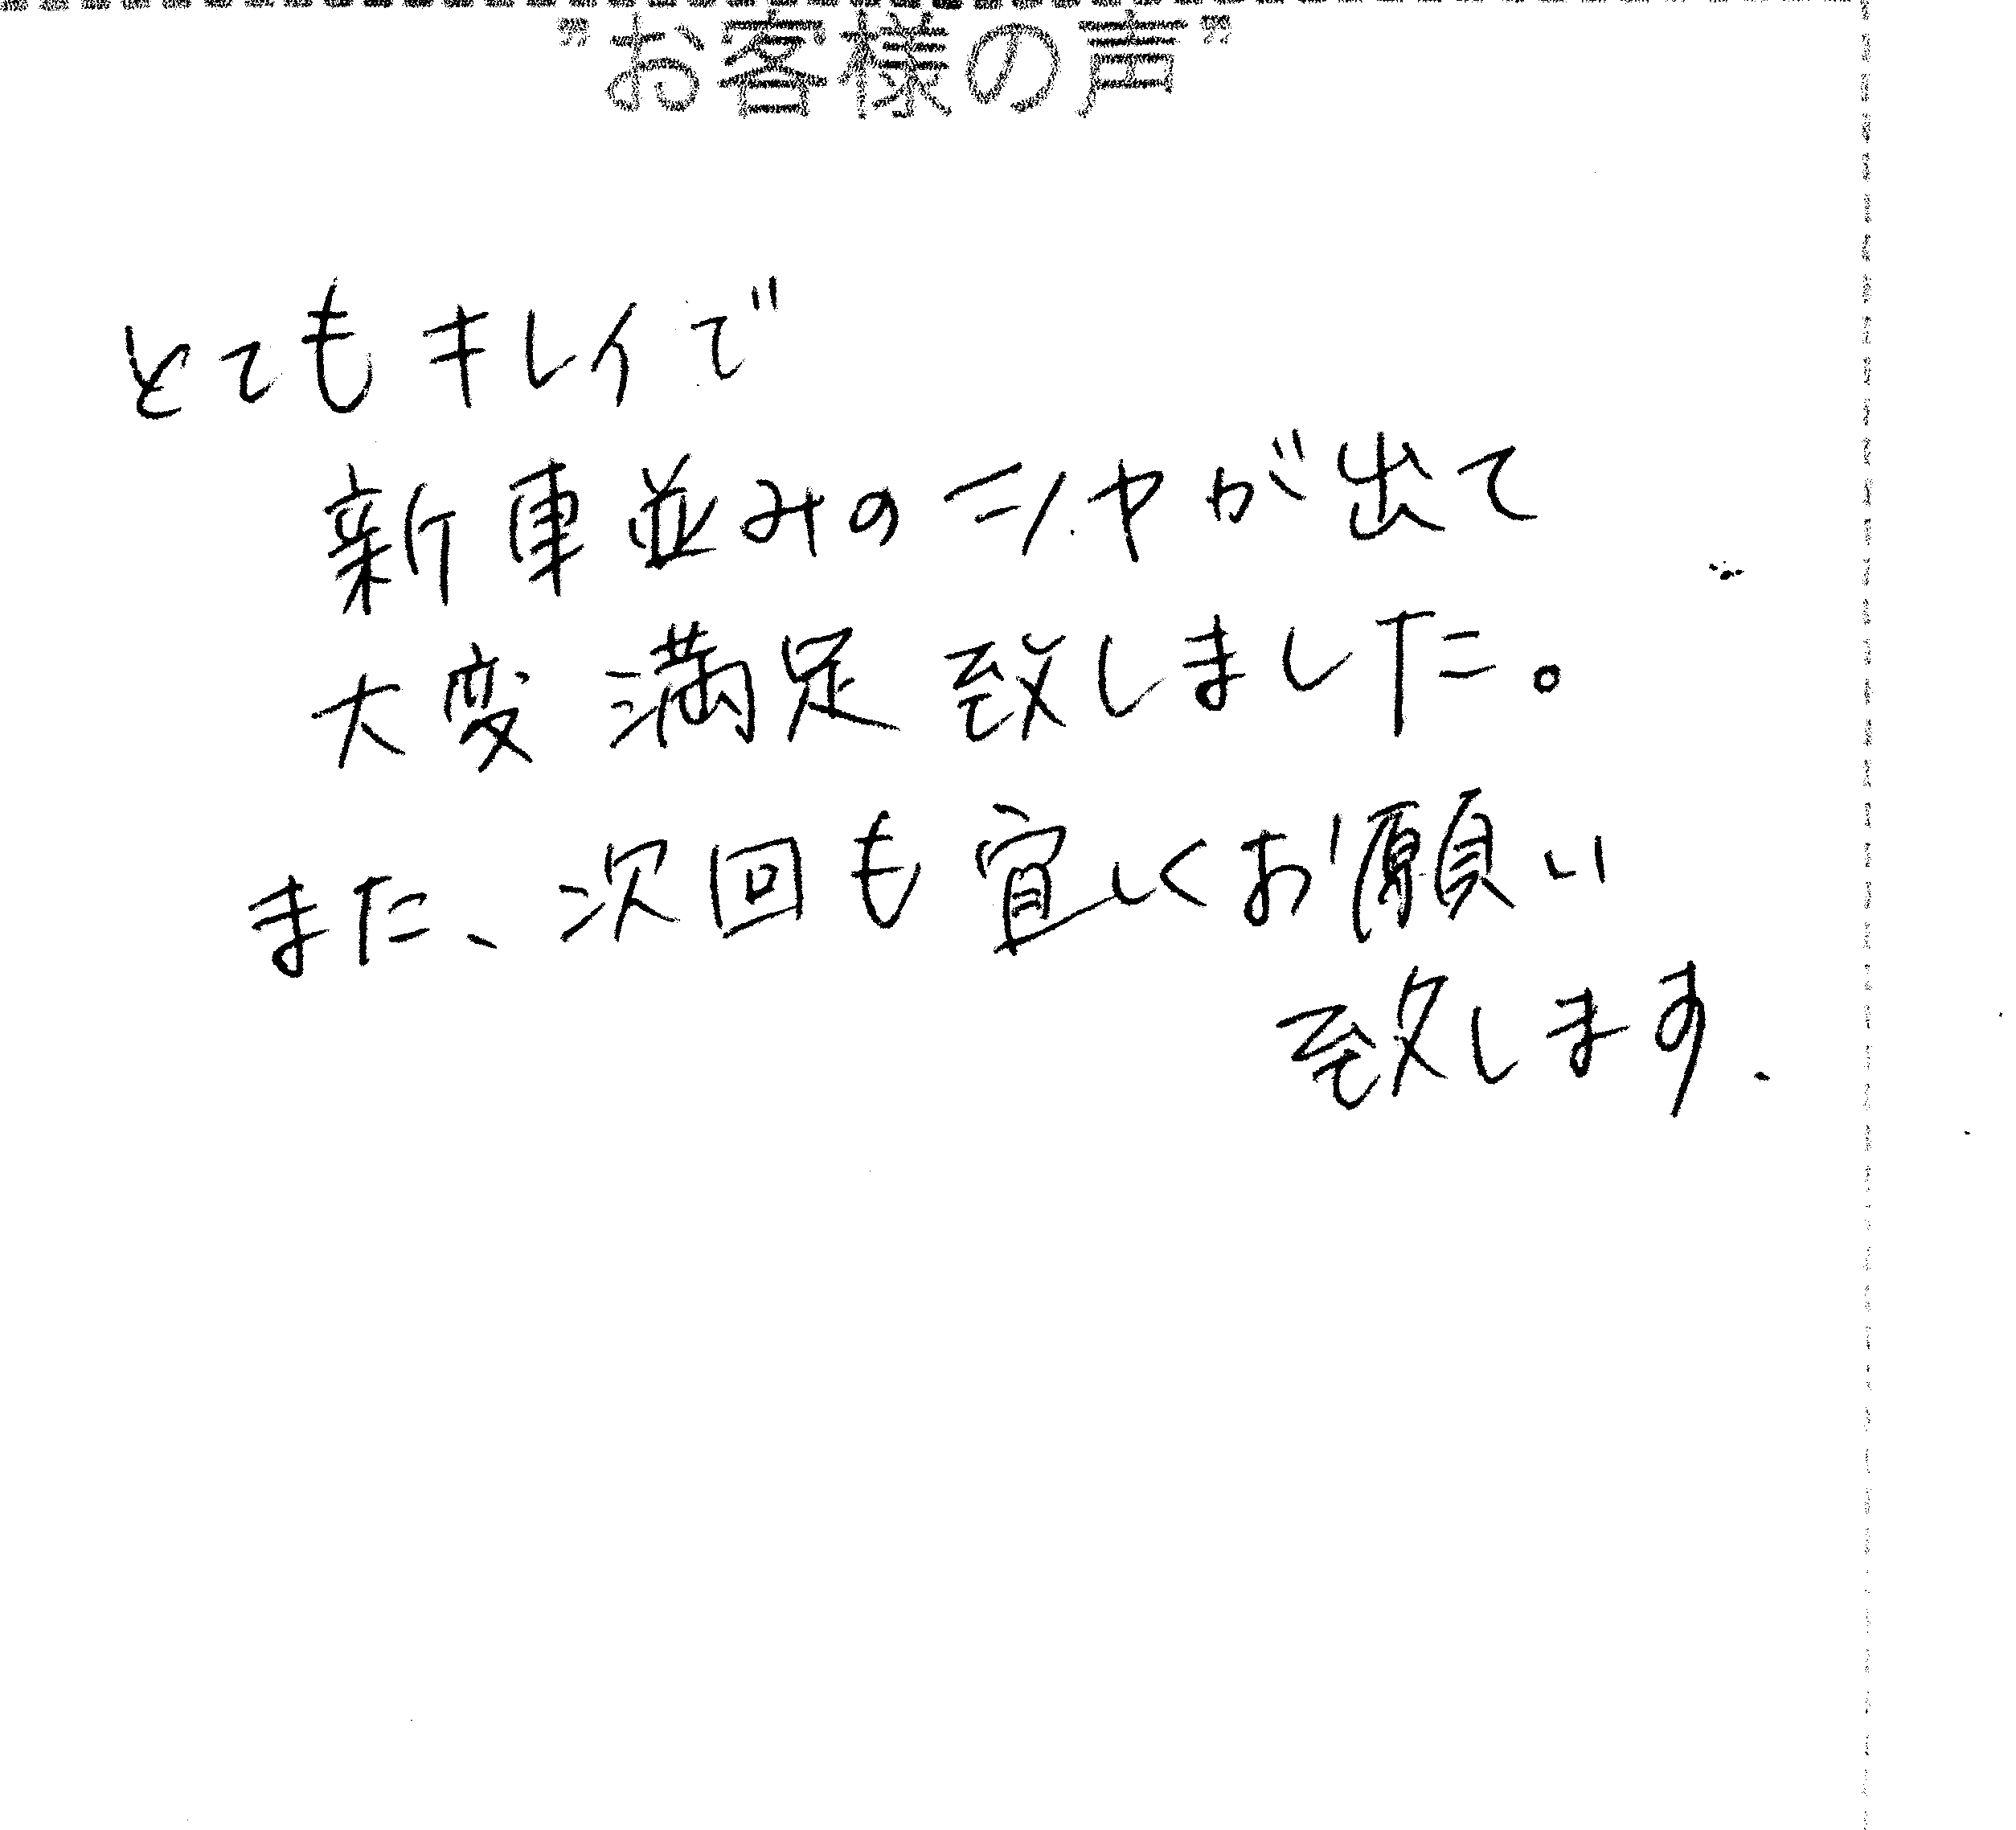 ”お客様の声”
とてもキレイで
新車並みのニシャが出て
大変満足致しました。
また、次回も宜しくお願い
致します.